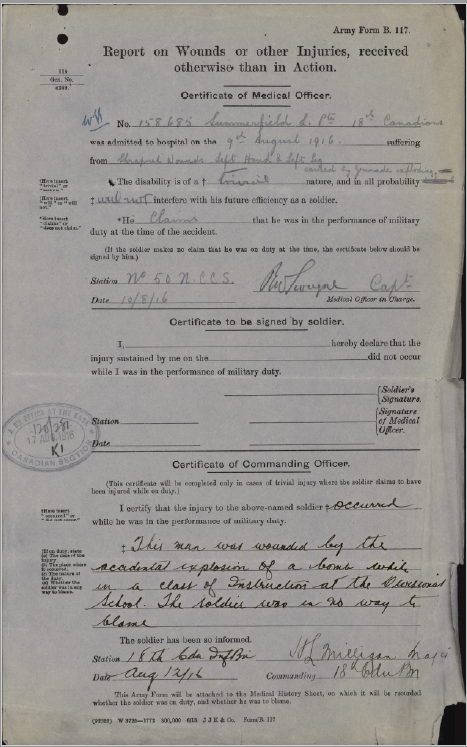 Army Form B. 117.
Report on Wounds or other Injuries, received
otherwise than in Action.
Certificate of Medical Officer.
No. 158685 Summerfield S. Pte 18th Canadians
was admitted to hospital on the 9th August 1916. suffering
from Shrapnel Wounds Left Hand & Left Leg
caused by Grenade exploding.
The disability is of a † Trivial nature, and in all probability
† will not interfere with his future efficiency as a soldier.
*He Claims that he was in the performance of military
duty at the time of the accident.
(If the soldier makes no claim that he was on duty at the time, the certificate below should be
signed by him.)
Station No 50 N.C.C.S. Capt
Date 10/8/16 Medical Officer in Charge.
Certificate to be signed by soldier.
I, hereby declare that the
injury sustained by me on the did not occur
while I was in the performance of military duty.
Soldier's
Signature.
Station
Signature
of Medical
Officer.
Date
17 AUG 1916
CANADIAN SECTION
Certificate of Commanding Officer.
(This certificate will be completed only in cases of trivial injury where the soldier claims to have
been injured while on duty.)
I certify that the injury to the above-named soldier ‡ occurred
while he was in the performance of military duty.
‡ This man was wounded by the
accidental explosion of a bomb while
in a class of Instruction at the Divisional
School. The soldier was in no way to
blame
The soldier has been so informed.
Station 18th Cdn Inf Bn Milligan Major
Date Aug 12/16 Commanding 18th Cdn Bn
This Army Form will be attached to the Medical History Sheet, on which it will be recorded
whether the soldier was on duty, and whether he was to blame.
500,000 6/15 J J K & Co. Form/B. 117